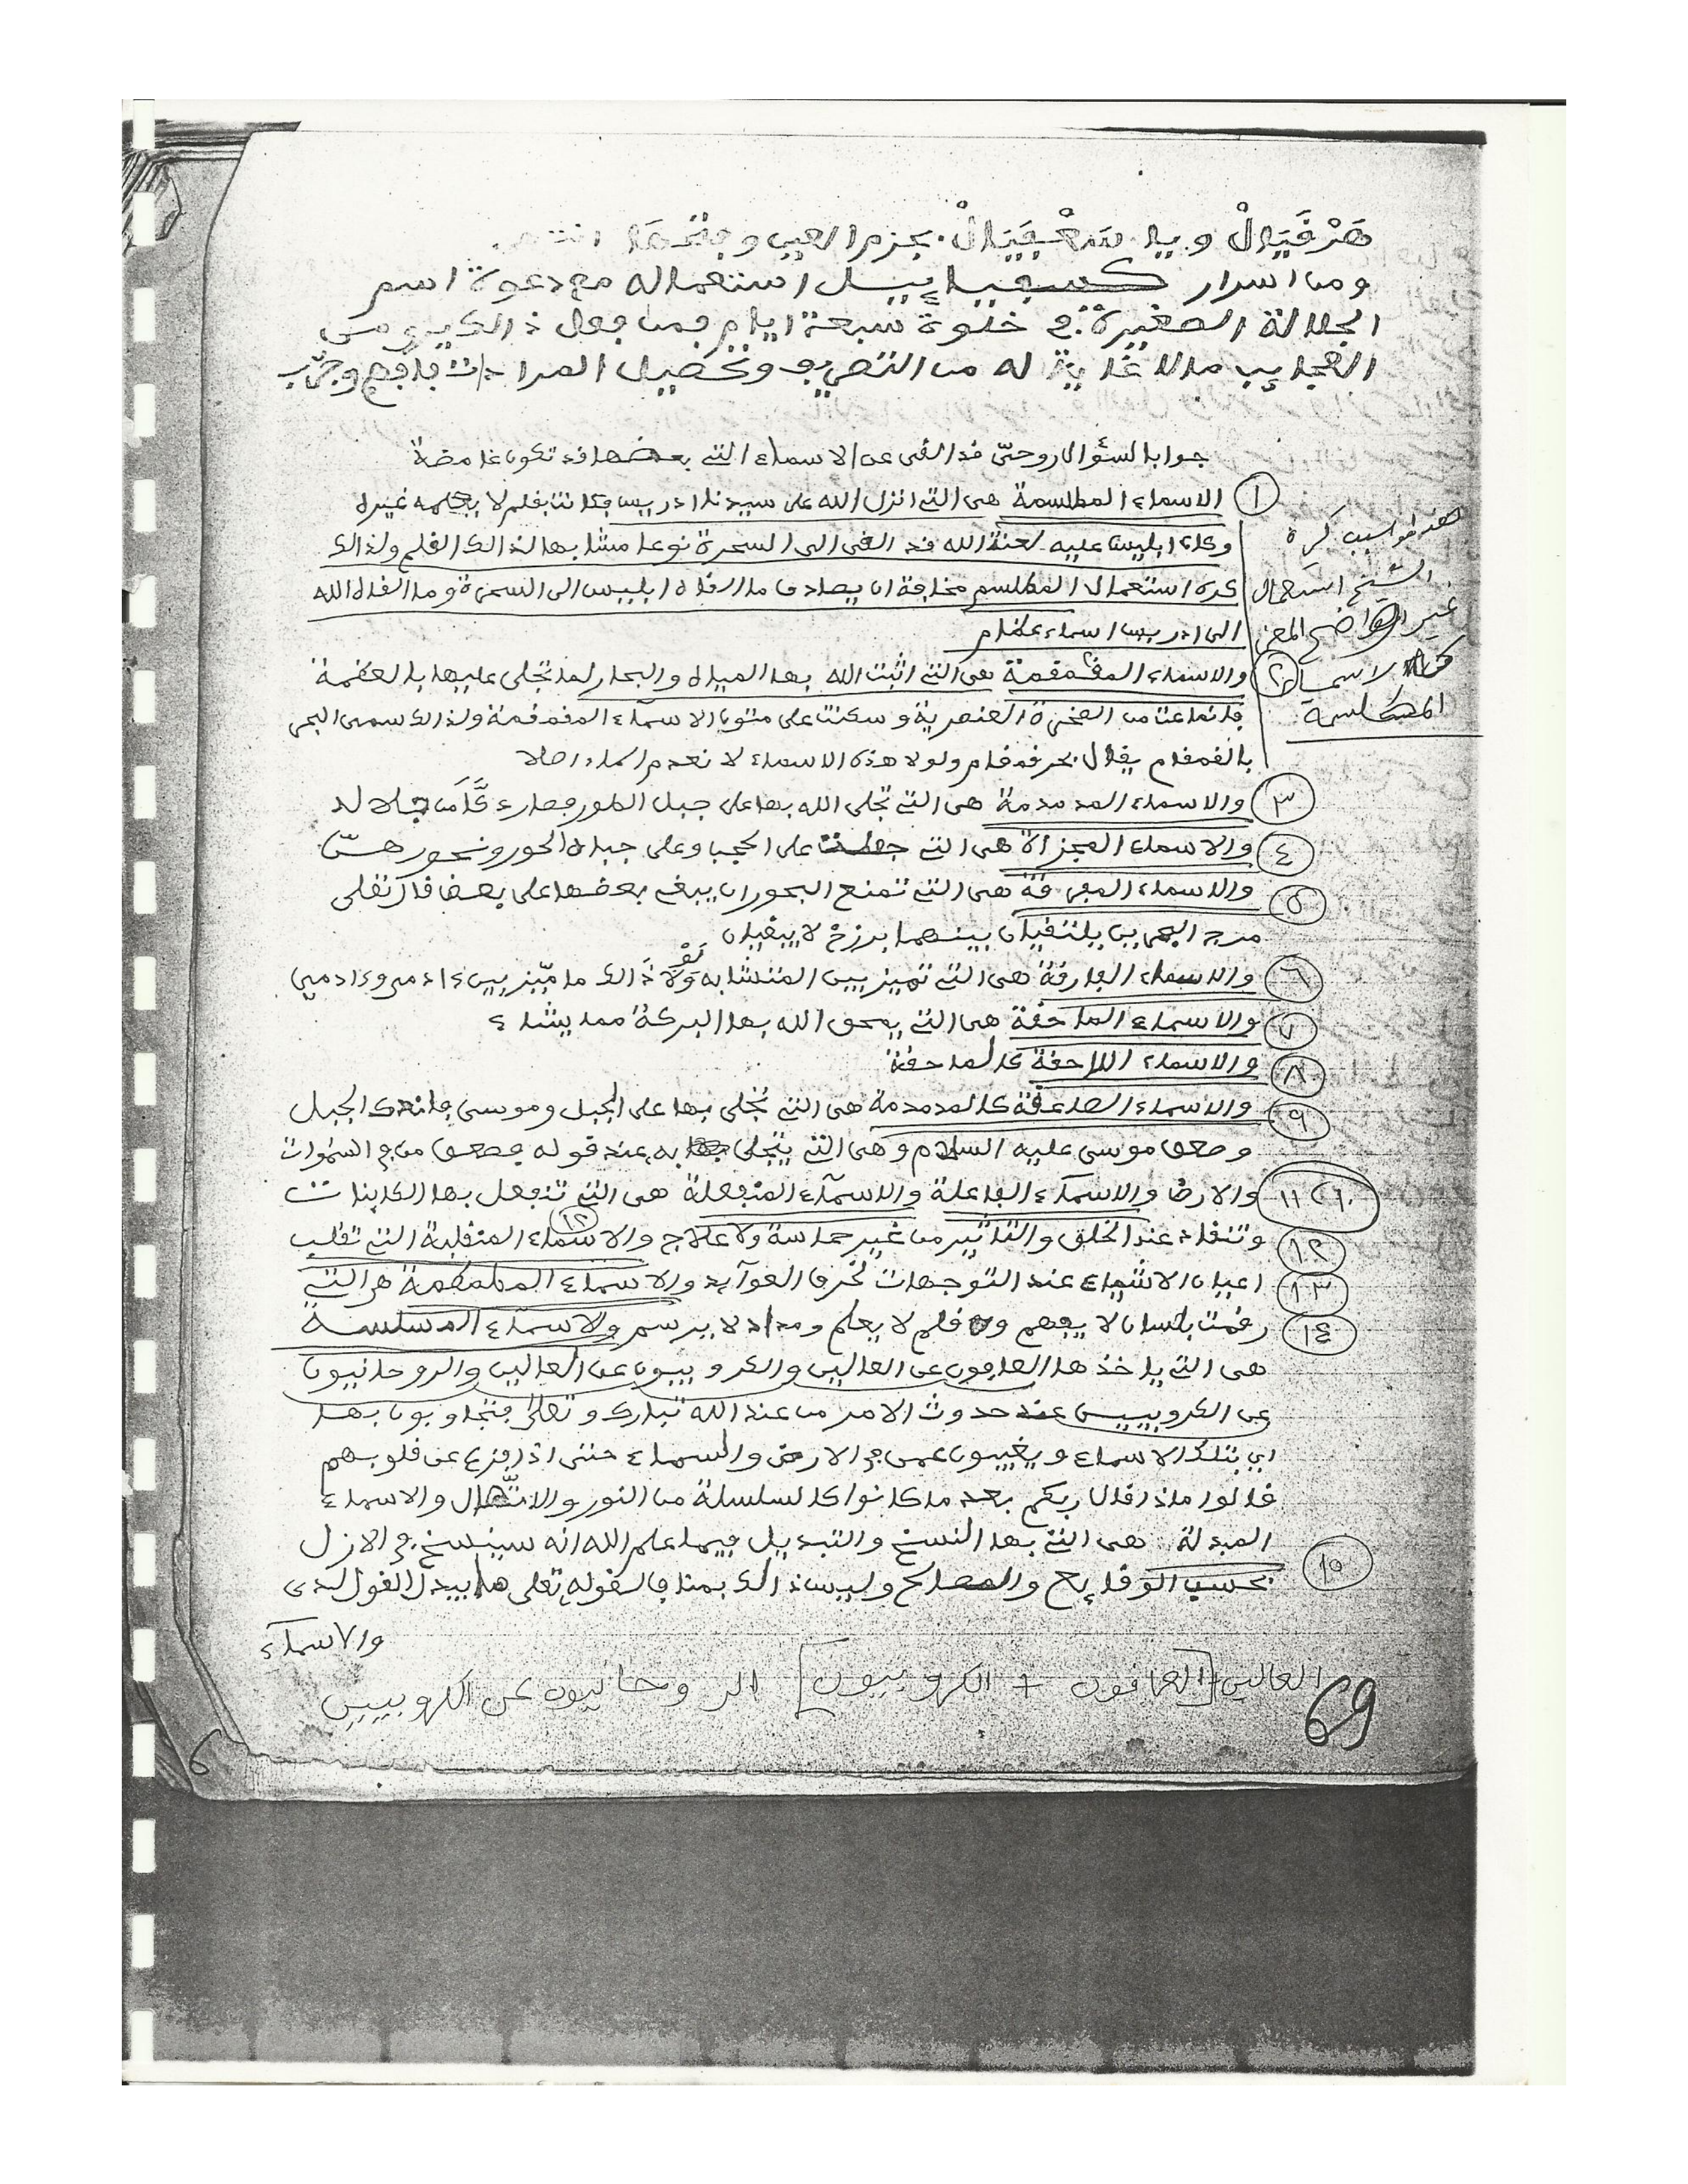 هَرْفَيَالْ ويا شَعْفَيَالْ بجزم العين وفتحها انتهى
ومن اسرار كسفياييل استعماله مع دعوة اسم
الجلالة الصغيرة في خلوة سبعة ايام فمن فعل ذالك يرى من
العجايب مالا غاية له من التصريف وتحصيل المرادات فافهم وجرّب
جواب السؤال روحيّ قد القى عن الاسماء التي بعضها قد تكون غامضة
١ الاسماء المطلسمة هى التي انزل الله على سيدنا ادريس فكانت بقلم لا يعلمه غيره
وكان ابليس عليه لعنة الله قد القى الى السحرة نوعا مشابها لذالك القلم ولذالك
كره استعمال المطلسم مخافة ان يصادف ما القاه ابليس الى السحرة وما القاه الله
الى ادريس اسماء عظام
هذا هو اسبب كرة
الشيخ استعمال
غير الواضح المعنى
الاسماء
المطلسمة
٢ والاسماء المقمقمة هى التي اثبت الله بها المياه والبحار لما تجلى عليها بالعظمة
فانماعت من الصخرة العنصرية وسكنت على متون الاسماء المقمقمة ولذالك سمى البحر
بالقمقام يقال بحر قمقام ولولا هذه الاسماء لا نعدم الماء اصلا
٣ والاسماء المدمدمة هى التي تجلى الله بها على جبل الطور فصار دَكّاً
٤ والاسماء العجزالاهى التي جعلت على الحجب وعلى جباه الحور ونحورهنّ
٥ والاسماء المفرقة هى التي تمنع البحور ان يبغي بعضها على بعض قال تعلى
مرج البحرين يلتقيان بينهما برزخ لا يبغيان
٦ والاسماء الفارقة هى التي تميز بين المتشابه وَلَوْلَا ذَالك ما ميّز بين ءادمي وءادمي
٧ والاسماء الماحقة هى التي يمحق الله بها البركة مما يشاء
٨ والاسماء اللاحقة كالماحقة
٩ والاسماء الصاعقة كالمدمدمة هى التي تجلى بها على الجبل وموسى فاندك الجبل
وصعق موسى عليه السلام وهى التي يتجلى به عند قوله فصعق من في السموات
١٠ ١١ والارض والاسماء الفاعلة والاسماء المنفعلة هى التي تنفعل بها الكاينات
وتنقاد عند الخلق والتاثير من غير مماسة ولا علاج ١٢ والاسماء المنقلبة التي تقلب
١٢
١٣ اعيان الاشياء عند التوجهات لخرق العوآيد والاسماء المطمطمة هى التي
١٤ رقمت بلسان لا يفهم وقلم لا يعلم ومداد لا يرسم والاسماء المسلسلة
هى التي ياخذها الحافون عن العالين والكروبيون عن العالين والروحانيون
عن الكروبيين عند حدوث الامر من عند الله تبارك وتعالى فيتجاوبون بها
اي بتلك الاسماء ويغيبون عمن في الارض والسماء حتى اذا فزع عن قلوبهم
قالوا ماذا قال ربكم بعد ما كانوا كالسلسلة من النور والاتصال والاسماء
المبدلة هى التي بها النسخ والتبديل فيما علم الله انه سينسخ في الازل
١٥ بحسب الوقايع والمصالح وليس ذالك بمناف لقوله تعلى ما يبدل القول لدى
والاسماء
العالين [الحافون + الكروبيون] الروحانيون عن الكروبيين
69